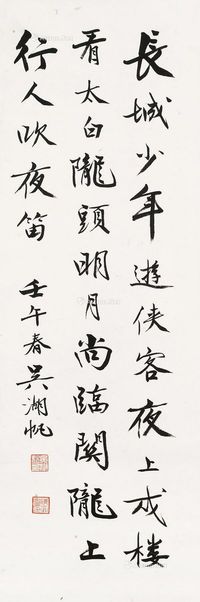 長城少年遊俠客夜上戍楼
看太白隴頭明月尚臨関隴上
行人吹夜笛
壬午春吳湖帆